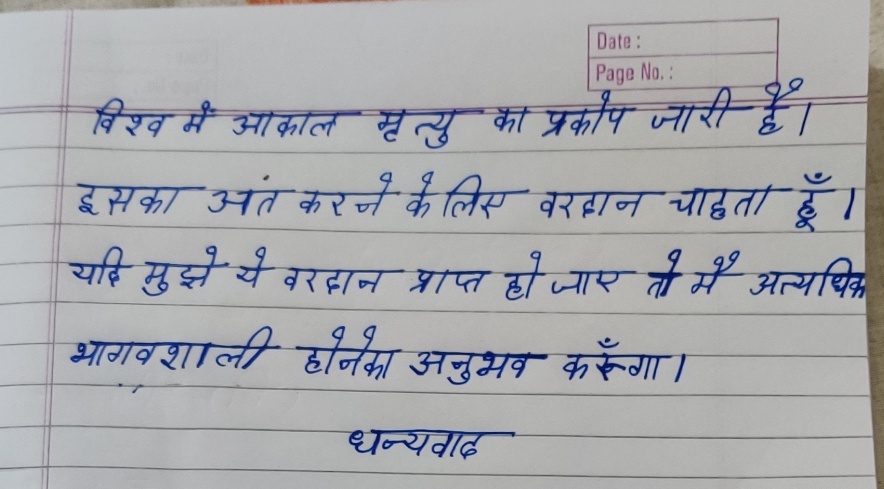 Date :
Page No. :
विश्व में आकाल मृत्यु का प्रकोप जारी है।
इसका अंत करने के लिए वरदान चाहता हूँ।
यदि मुझे ये वरदान प्राप्त हो जाए तो मैं अत्यधिक
भागवशाली होनेका अनुभव करूँगा।
धन्यवाद